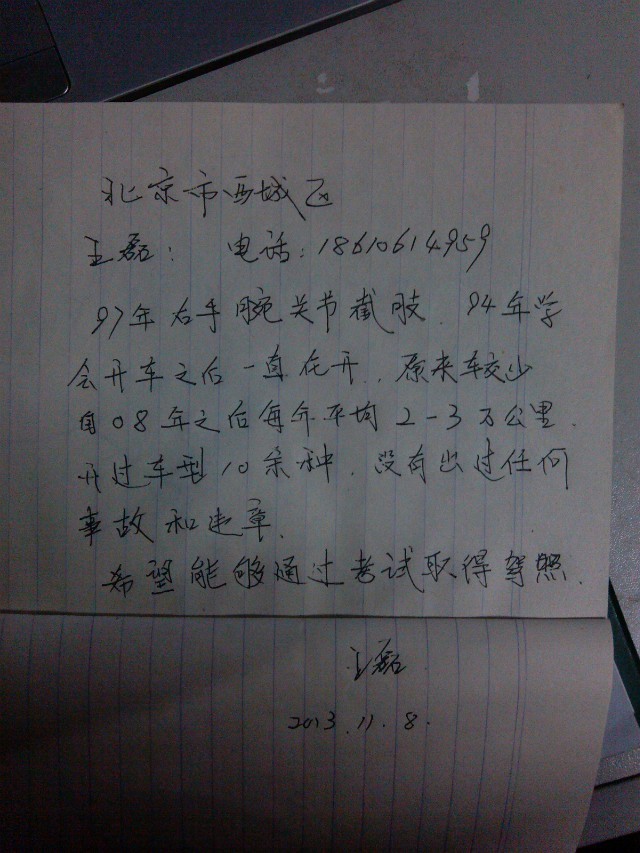 北京市西城区
王磊： 电话：18610614959
97年右手腕关节截肢．94年学
会开车之后一直在开．原来车较少
自08年之后每年平均2-3万公里．
开过车型10余种．没有出过任何
事故和违章．
希望能够通过考试取得驾照．
王磊
2013.11.8.